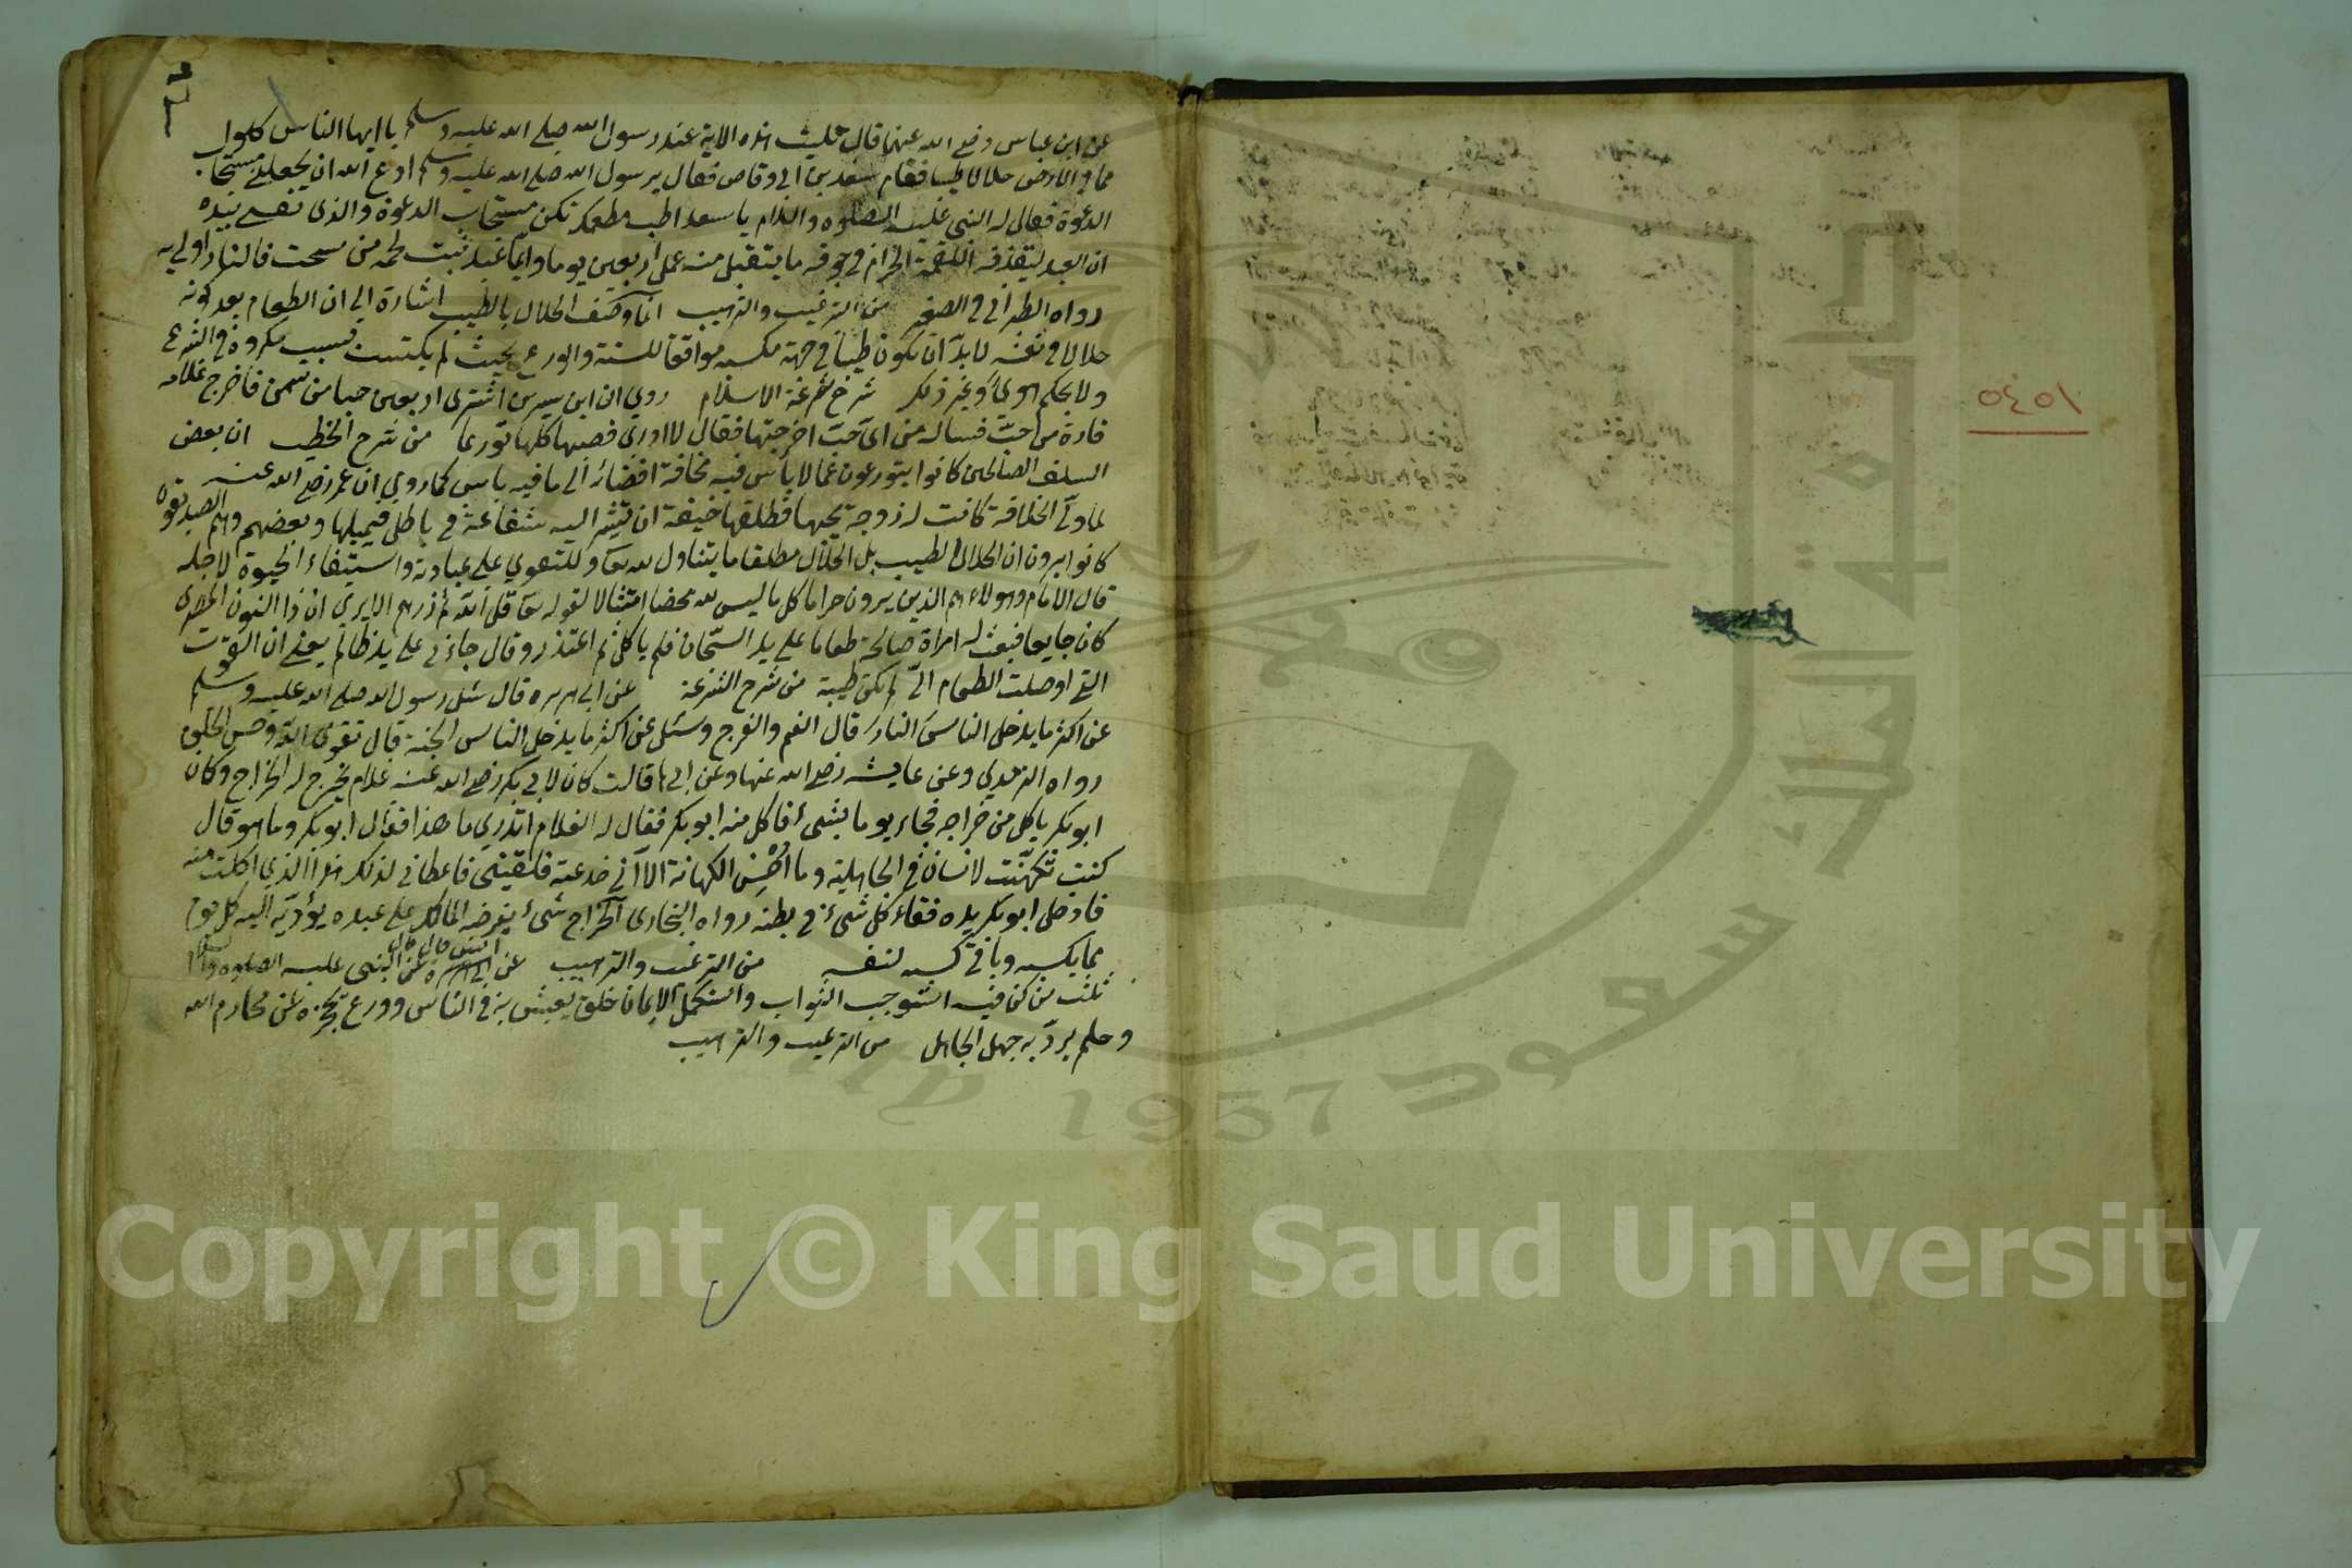 عن ابن عباس رضي الله عنهما قال تليت هذه الاية عند رسول الله صلى الله عليه وسلم يا ايها الناس كلوا
مما في الارض حلالا طيبا فقام سعد بن ابي وقاص فقال يرسول الله صلى الله عليه وسلم ادع الله ان يجعلني مستجاب
الدعوة فقال له النبي عليه الصلوة والسلام يا سعد اطب مطعمك تكن مستجاب الدعوة والذي نفسي بيده
ان العبد ليقذف اللقمة الحرام في جوفه ما يتقبل منه عمل اربعين يوما وايما عبد نبت لحمه من سحت فالنار اولى به
رواه الطبراني في الصغير من الترغيب والترهيب انما وصف الحلال بالطيب اشارة الى ان الطعام بعد كونه
حلالا في نفسه لا بد ان يكون طيبا في جهة مكسبه موافقا للسنة والورع بحيث لم يكتسب بسبب مكروه في الشرع
ولا بحكم هوى وغير ذلك شرح شرعة الاسلام روي ان ابن سيرين اشترى اربعين حبا من سمن فاخرج غلامه
فارة من حب فساله من اي حب اخرجتها فقال لا ادري فصبها كلها تورعا من شرح الخطب ان بعض
السلف الصالحين كانوا يتورعون عما لا بأس فيه مخافة افضائه الى ما فيه باس كما روي ان عمر رضي الله عنه
لما ولي الخلافة كانت له زوجة يحبها فطلقها خيفة ان تشير اليه شفاعة في باطل فيميلها وبعضهم وهم الصديقون
كانوا يرون ان الحلال الطيب بل الحلال مطلقا ما يتناول لله تع وللتقوي على عبادته واستبقاء الحيوة لاجله
قال الامام وهولاء هم الذين يرون حراما كل ما ليس لله محضا امتثالا لقوله تع قل الله ثم ذرهم الا يرى ان ذا النون المصري
كان جايعا فبعث له امراة صالحة طعاما على يد السجان فلم ياكل ثم اعتذر وقال جاءني على يد ظالم يعني ان القوت
التي اوصلت الطعام الي لم تكن طيبة من شرح الشرعة عن ابي هريره قال سئل رسول الله صلى الله عليه وسلم
عن اكثر ما يدخل الناس النار قال الفم والفرج وسئل عن اكثر ما يدخل الناس الجنة قال تقوى الله وحسن الخلق
رواه الترمذي وعن عايشه رضي الله عنها وعن ابيها قالت كان لابي بكر رضي الله عنه غلام يخرج له الخراج وكان
ابو بكر ياكل من خراجه فجاء يوما بشئ فاكل منه ابو بكر فقال له الغلام اتدري ما هذا فقال ابو بكر وما هو قال
كنت تكهنت لانسان في الجاهلية وما احسن الكهانة الا اني خدعته فلقيني فاعطاني لذلك هذا الذي اكلت منه
فادخل ابو بكر يده فقاء كل شئ في بطنه رواه البخاري الخراج شئ يفرضه المالك على عبده يؤديه اليه كل يوم
مما يكسبه وباقي كسبه لنفسه من الترغيب والترهيب عن انس قال قال النبي عليه الصلوة والسلام
ثلث من كن فيه استوجب الثواب واستكمل الايمان خلق يعيش به في الناس وورع يحجزه عن محارم الله
وحلم يرد به جهل الجاهل من الترغيب والترهيب
٥٤٥١
Copyright © King Saud University
1957